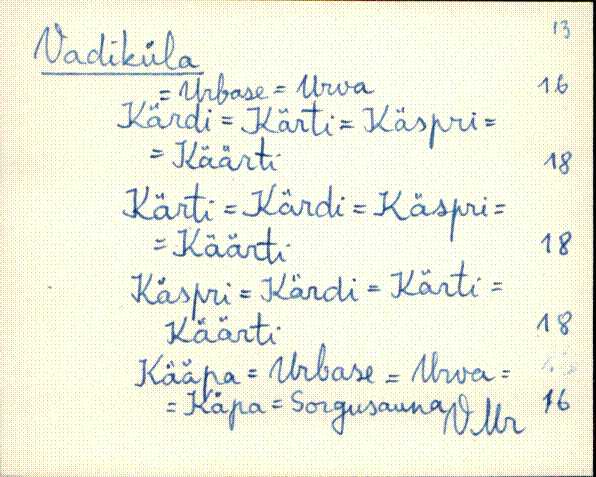 13
Vadiküla
= Urbase = Urva 16
Kärdi = Kärti = Käspri =
= Käärti 18
Kärti = Kärdi = Käspri =
= Käärti 18
Käspri = Kärdi = Kärti =
Käärti 18
Kääpa = Urbase = Urva =
= Käpa = Sorgusauna 16
VMr